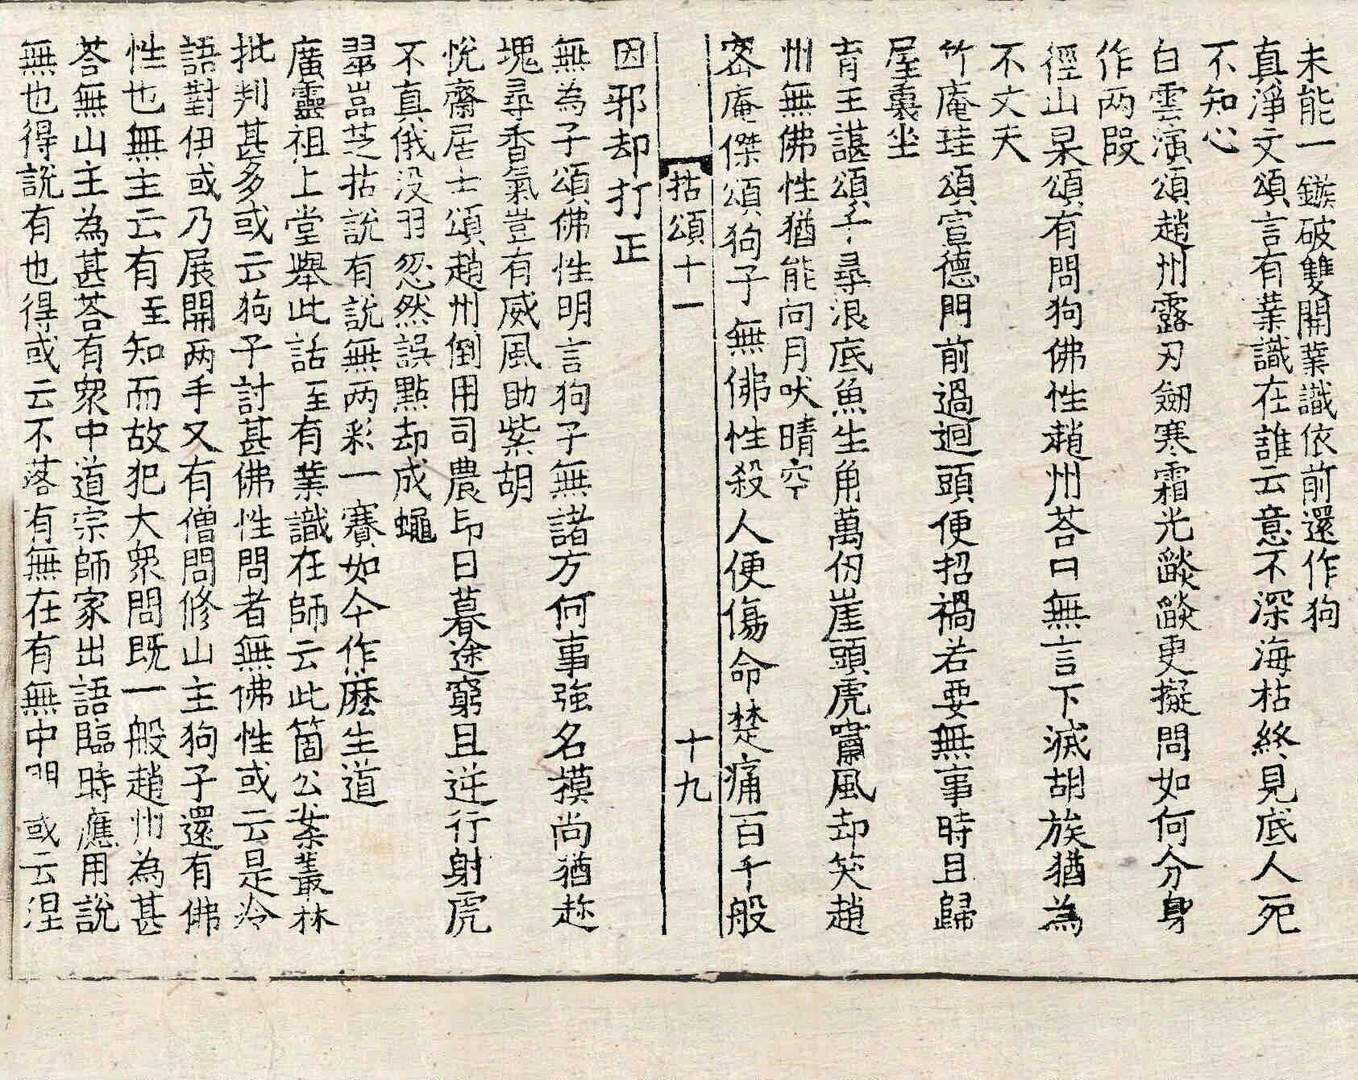 未能一鏃破雙關業識依前還作狗
真淨文頌言有業識在誰云意不深海枯終見底人死
不知心
白雲演頌趙州露刃劒寒霜光燄燄更擬問如何分身
作两段
徑山杲頌有問狗佛性趙州荅曰無言下滅胡族猶為
不丈夫
竹庵珪頌宣德門前過迴頭便招禍若要無事時且歸
屋裏坐
育王諶頌子子尋浪底魚生角萬仞崖頭虎嘯風却笑趙
州無佛性猶能向月吠晴空
密庵傑頌狗子無佛性殺人便傷命楚痛百千般
拈頌十一 十九
因邪却打正
無為子頌佛性明言狗子無諸方何事強名摸尚猶趂
塊尋香氣豈有威風助紫胡
悅齋居士頌趙州倒用司農印日暮途窮且逆行射虎
不真俄没羽忽然誤點却成蠅
翠嵓芝拈說有說無两彩一賽如今作麽生道
廣靈祖上堂舉此話至有業識在師云此箇公案叢林
批判甚多或云狗子討甚佛性問者無佛性或云是冷
語對伊或乃展開两手又有僧問修山主狗子還有佛
性也無主云有至知而故犯大衆問既一般趙州為甚
荅無山主為甚荅有衆中道宗師家出語臨時應用說
無也得說有也得或云不落有無在有無中明或云涅